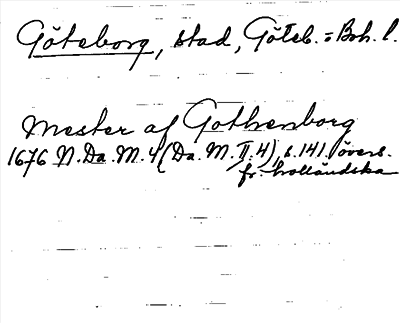 Göteborg, stad, Göteb. = Boh. l.
Mester af Gothenborg
1676 N. Da. M. 4 (Da. M. II: 4), s. 141. övers.
fr. holländska